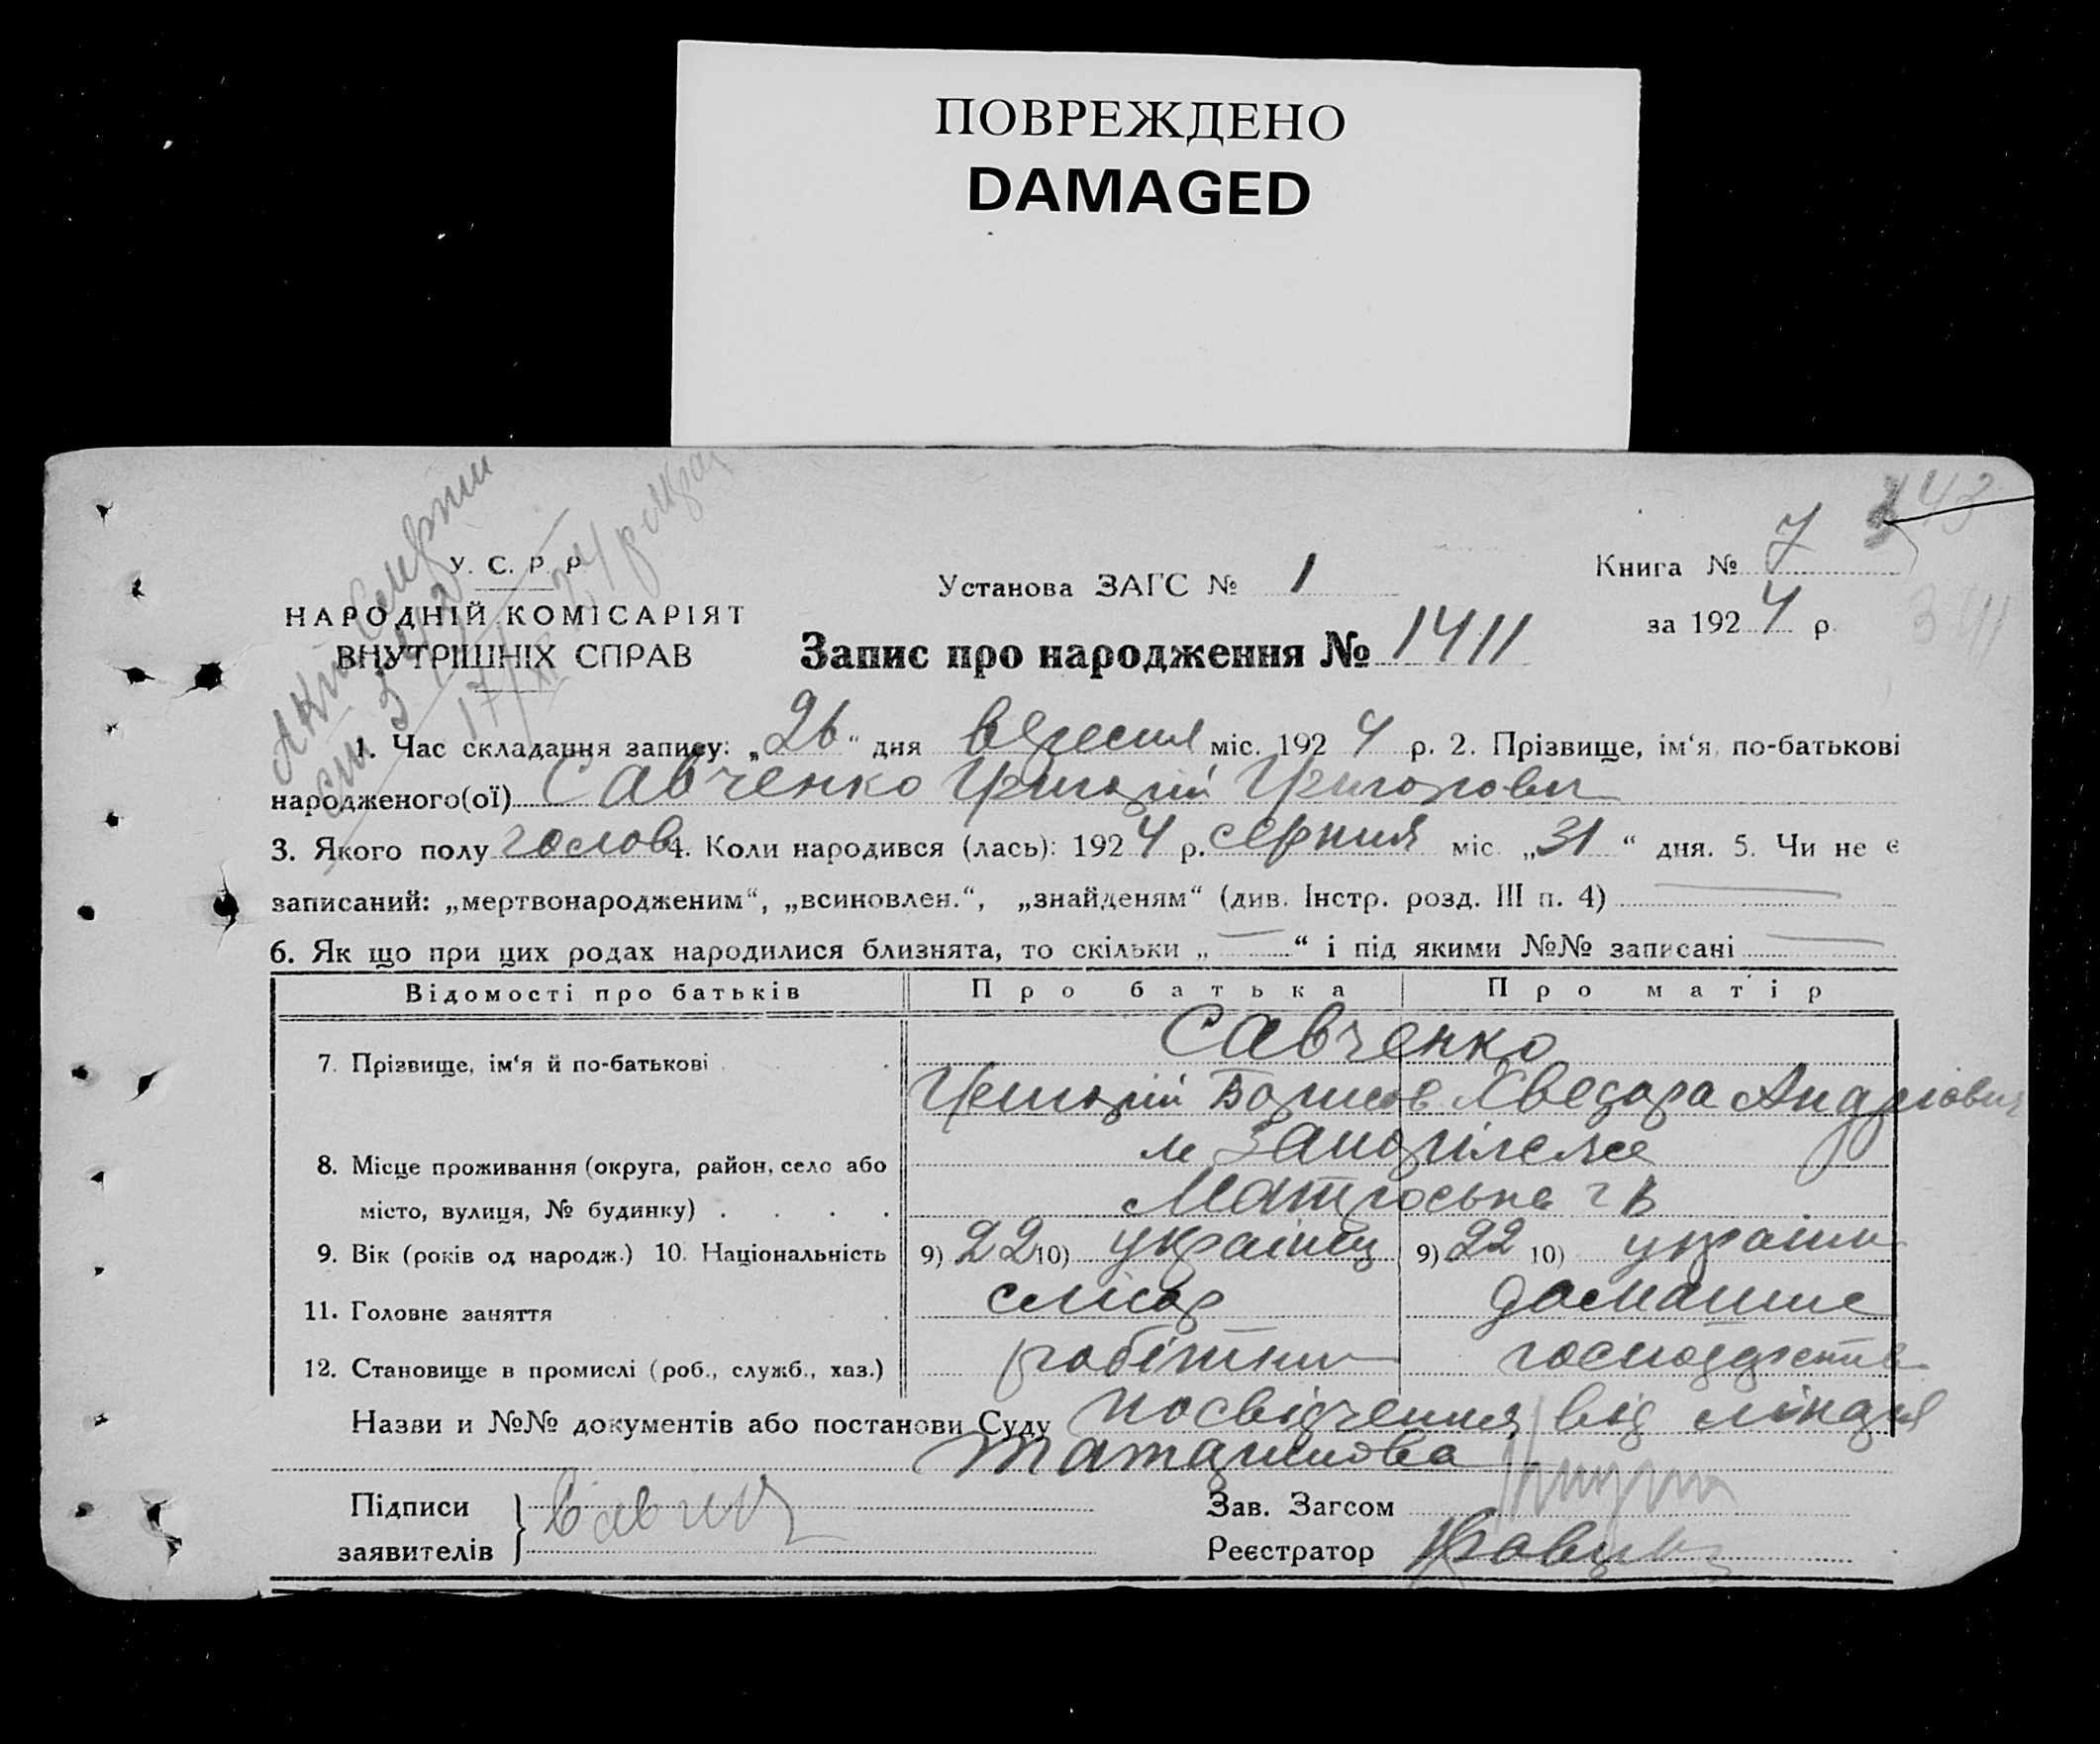 ПОВРЕЖДЕНО
DAMAGED
43
У. С. Р. Р.
НАРОДНІЙ КОМІСАРІЯТ
ВНУТРІШНІХ СПРАВ
Установа ЗАГС № 1
Книга № 7
за 1924 р.
Запис про народження № 1411
Акт Смерти
1. Час складання запису: „26“ дня вересня міс. 1924 р. 2. Прізвище, ім‘я, по-батькові
народженого(ої) Савченко Григорій Григорович
3. Якого полу чолов 4. Коли народився (лась): 1924 р. серпня міс. „31“ дня. 5. Чи не є
записаний: „мертвонародженим“, „всиновлен.“, „знайденям“ (див. Інстр. розд. III п. 4)
6. Як що при цих родах народилися близнята, то скільки „—“ і під якими №№ записані —
Відомості про батьків Про батька Про матір
7. Прізвище, ім‘я й по-батькові Савченко
Григорій Борисов Хведора Андріовна
8. Місце проживання (округа, район, село або м Запоріжжє
місто, вулиця, № будинку) Матроська
9. Вік (років од народж.) 10. Національність 9) 22 10) українец 9) 22 10) україн
11. Головне заняття слюсар домашне
12. Становище в промислі (роб., служб., хаз.) робітник господарств
Назви и №№ документів або постанови Суду посвідчення від лікаря
Татаринова
Підписи заявителів } Савченко
Зав. Загсом
Реєстратор